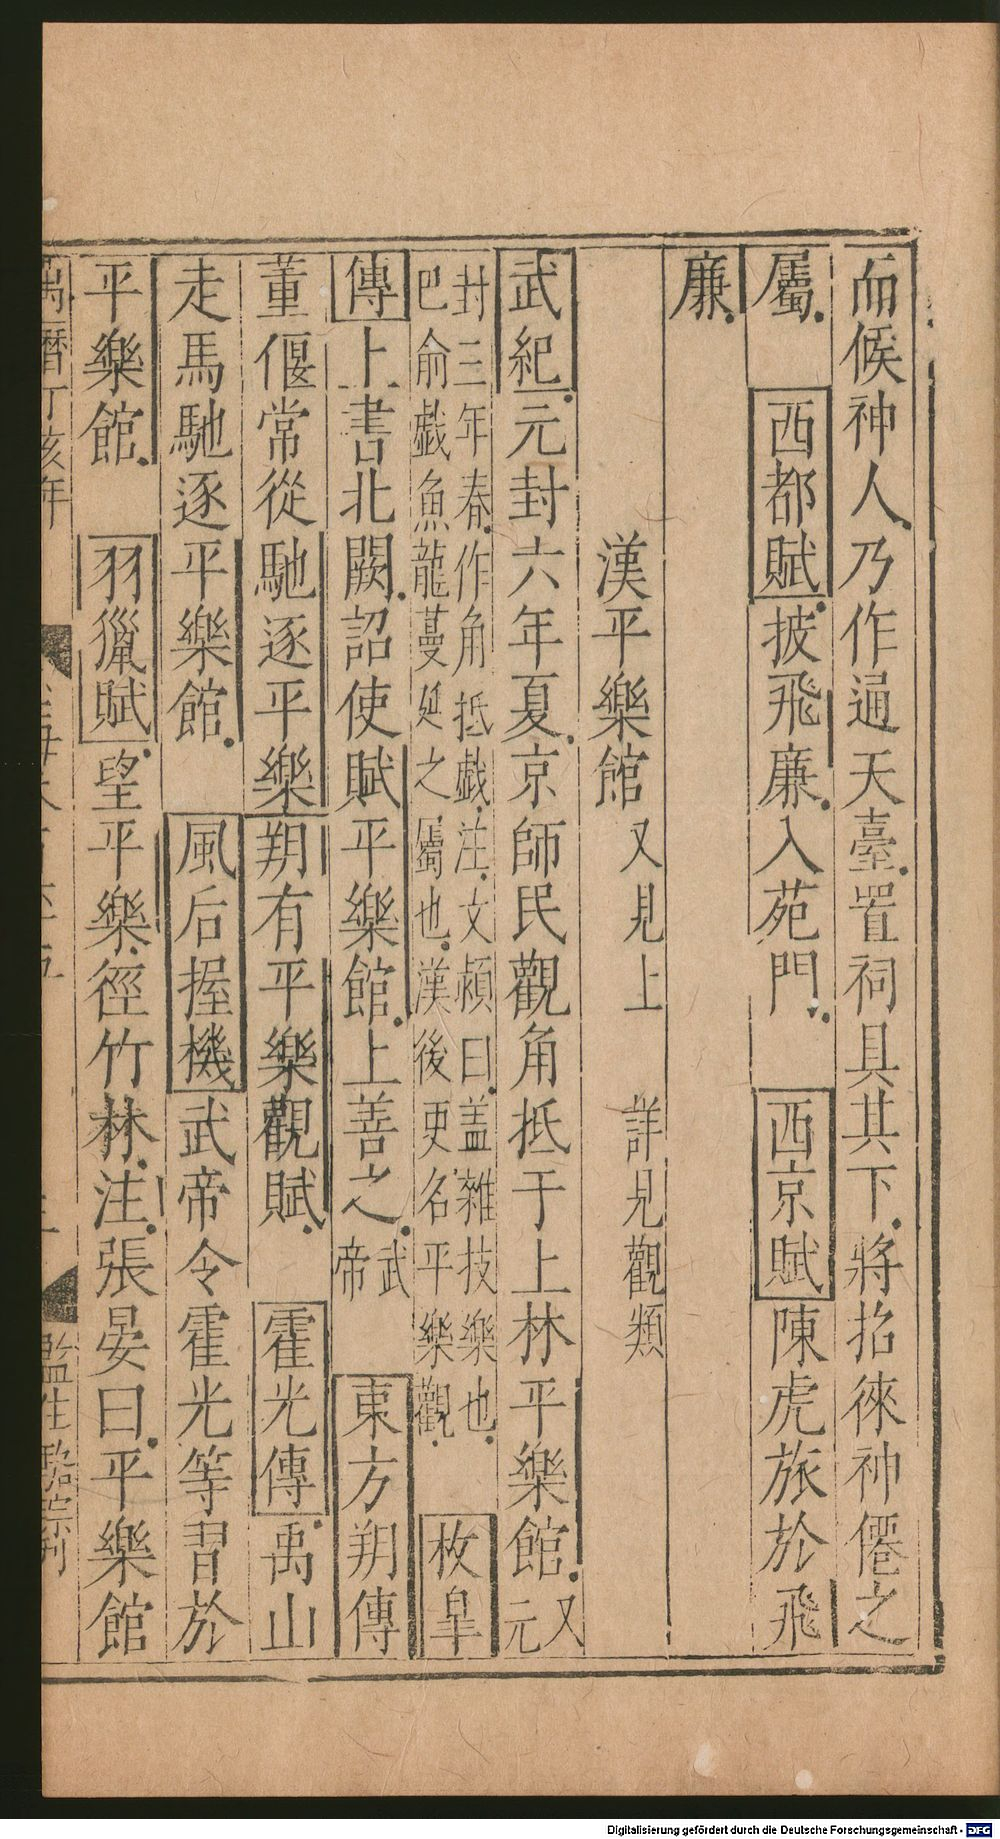 而候神人乃作通天臺置祠具其下將招徠神僊之
屬　西都賦披飛廉入苑門　西京賦陳虎旅於飛
廉
漢平樂館又見上　詳見觀類
武紀元封六年夏京師民觀角抵于上林平樂館又元
封三年春作角抵戲注文潁曰盖雜技樂也
巴俞戲魚龍蔓延之屬也漢後更名平樂觀　枚皐
傳上書北闕詔使賦平樂館上善之武帝　東方朔傳
董偃常從馳逐平樂朔有平樂觀賦　霍光傳禹山
走馬馳逐平樂館　風后握機武帝令霍光等習於
平樂館　羽獵賦望平樂徑竹林注張晏曰平樂館
曆丁亥年
監生
Digitalisierung gefördert durch die Deutsche Forschungsgemeinschaft - DFG